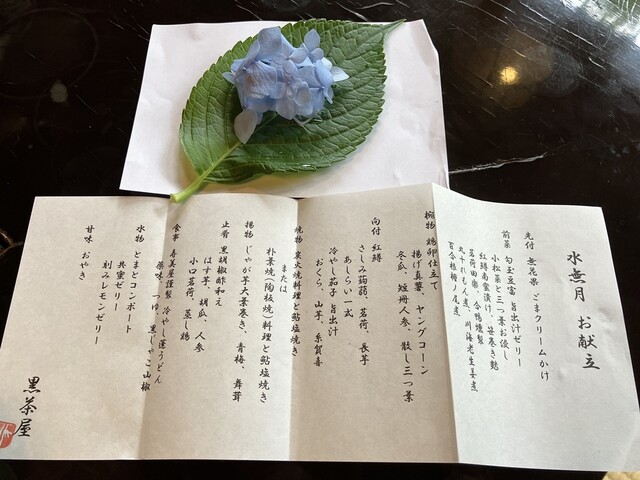 水無月 お献立
先付 無花果 ごまクリームかけ
前菜 勾玉豆富 旨出汁ゼリー
小松菜と三つ葉のお浸し
紅鱒南蛮漬け、笹巻き麩
茗荷田楽、合鴨燻製
丸十れもん煮、川海老生姜煮
百合根
椀物 鶏卵仕立て
揚げ真薯、ヤングコーン
冬瓜、短冊人参、散し三つ葉
向付 紅鱒
さしみ蒟蒻、茗荷、長芋
あしらい一式
冷やし茄子 旨出汁
おくら、山芋、糸賀喜
焼物 炭火焼料理と鮎塩焼き
または
朴葉焼(陶板焼)料理と鮎塩焼き
揚物 じゃが芋大葉巻き、青梅、舞茸
止肴 黒胡椒酢和え
はす芋、胡瓜、人参
小口茗荷、蒸し鶏
食事 寿美屋謹製 冷やし蓮うどん
薬味、つゆ、黒じゃこ山椒
水物 とまとコンポート
共蜜ゼリー
刻みレモンゼリー
甘味 おやき
黒茶屋